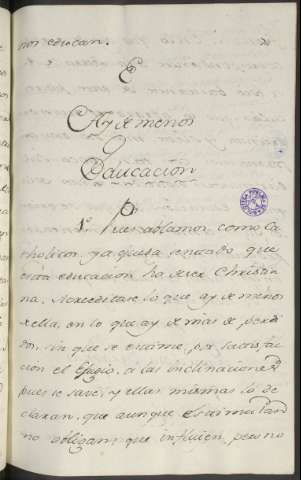 nos educan.
E
Ay de menos
Educacion
P
1.º Pues ablamos como Ca
tholicos, ya queda sentado que
esta educacion ha de ser Christia
na. Acreditase lo que ay de menos
de ella, en lo que ay de mas de perdi
dos, sin que se exâmine, por satisfac
cion el Efugio, a las inclinaciones
pues se save, y ellas mismas lo de
claran, que aunque
no obligan, que influien, pero no